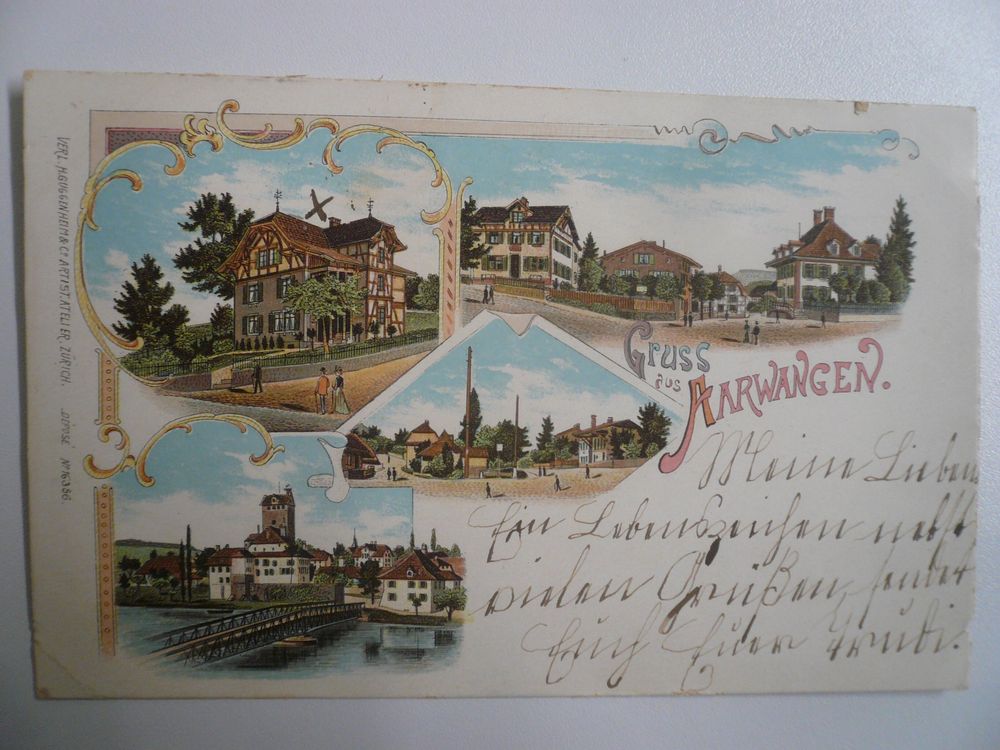 VERL. H. GUGGENHEIM & Co ARTIST. ATELIER, ZÜRICH. DÉPOSÉ No 16386.
GRUSS
aus
AARWANGEN.
Meine Lieben
Ein Lebenszeichen nebst
vielen Grüßen, sendet
Euch Euer Trudi.